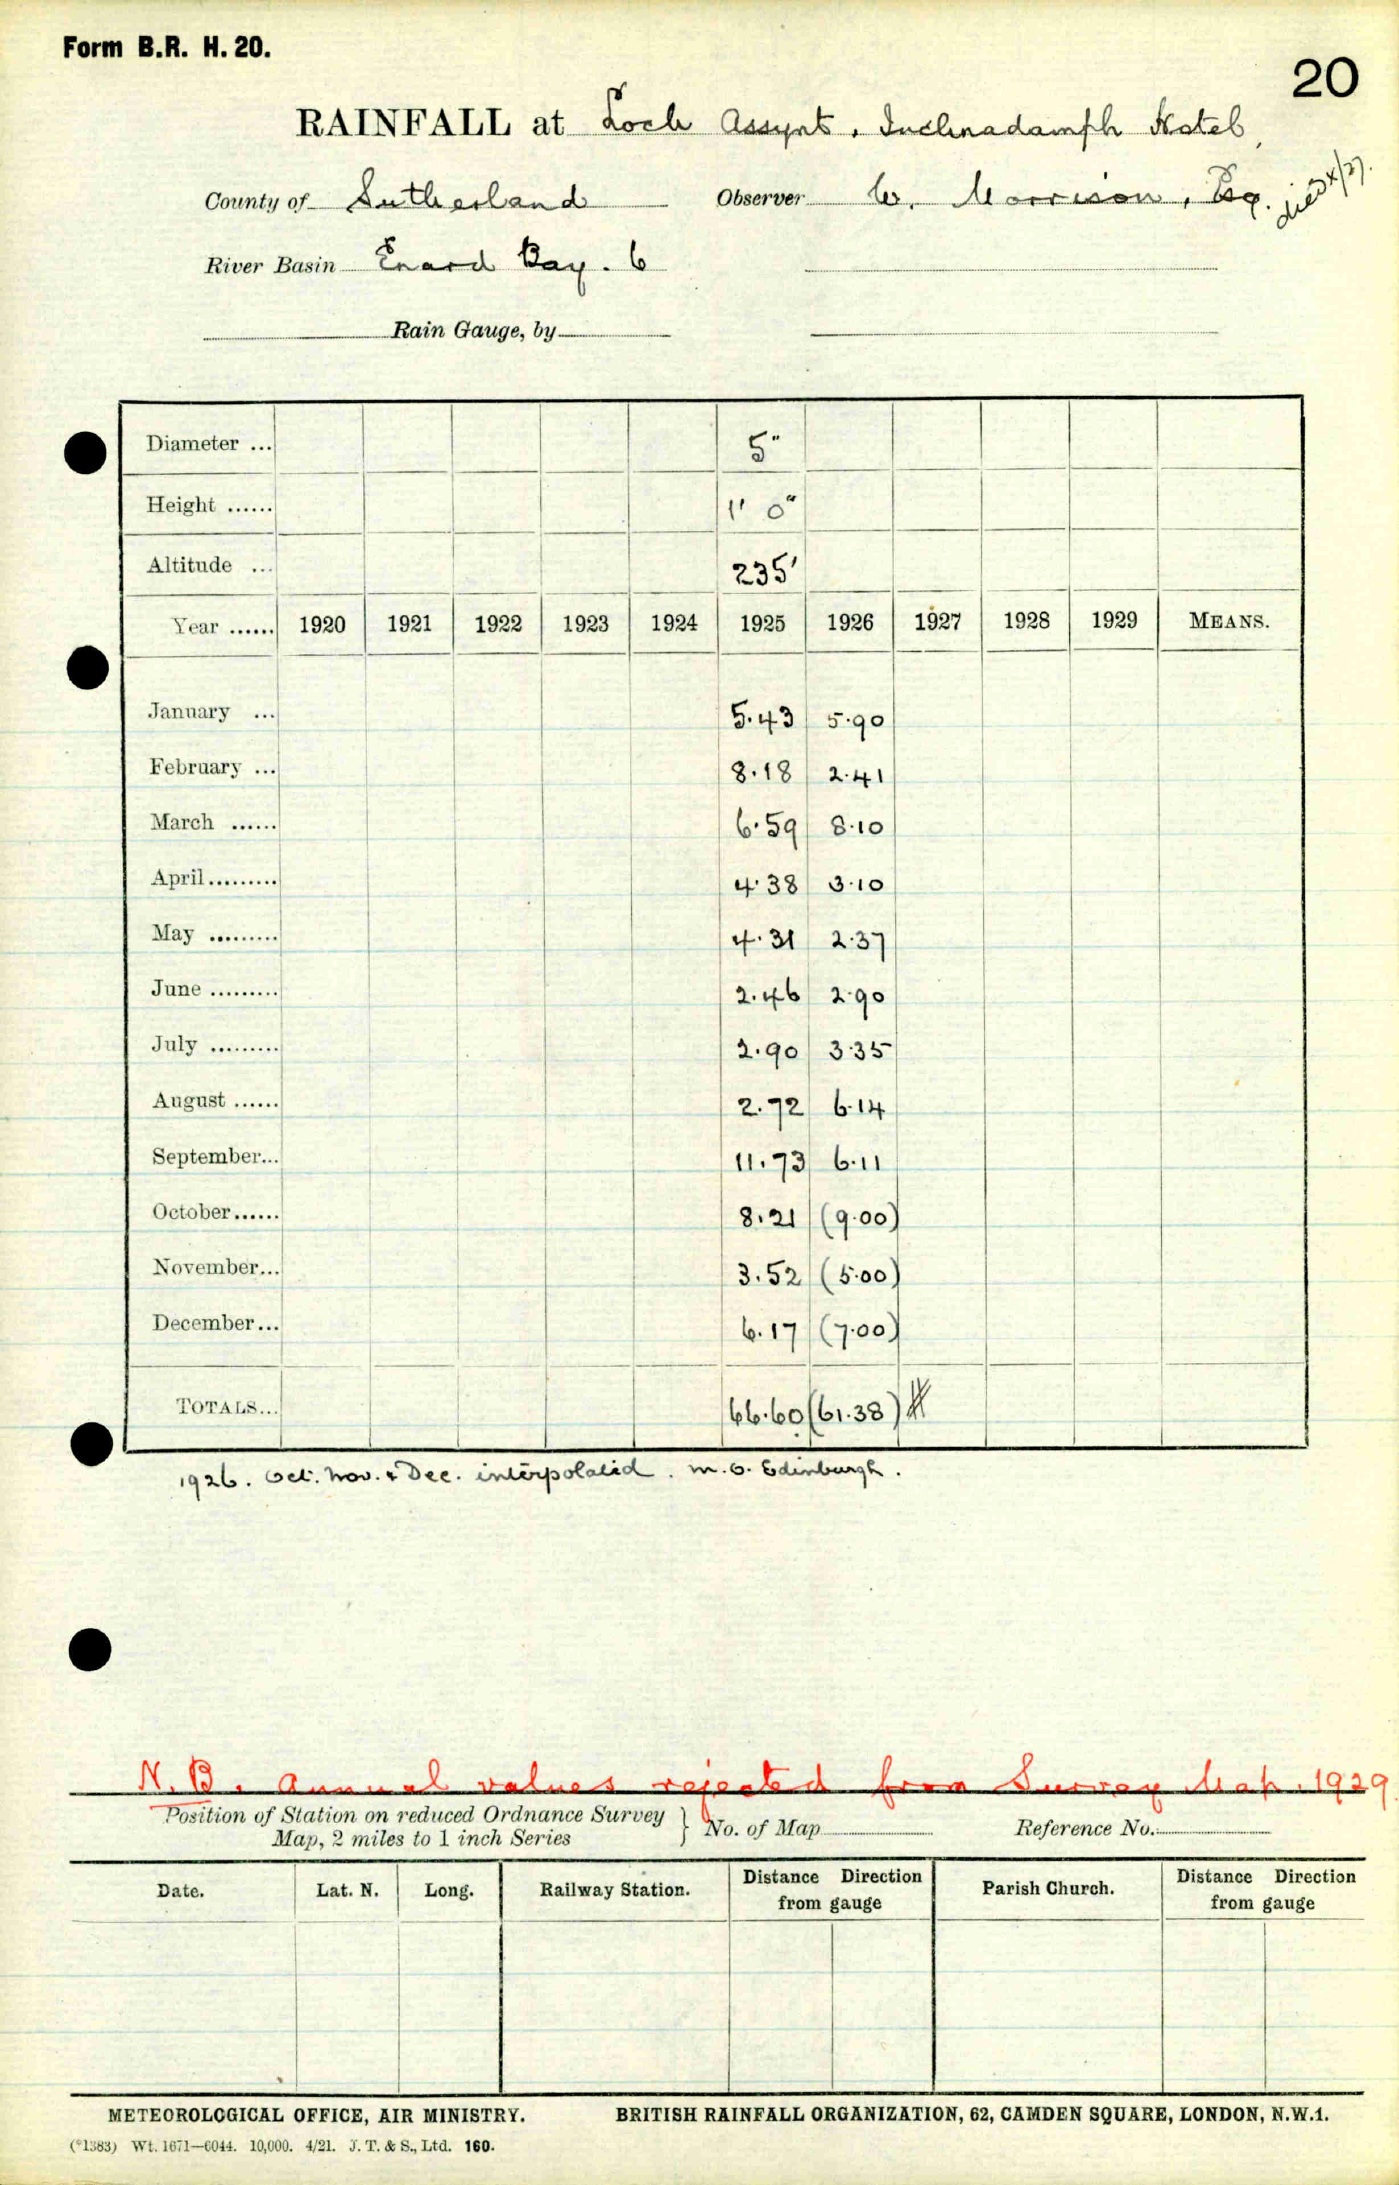 Form B.R. H. 20.
20
RAINFALL at Loch Assynt, Inchnadamph Hotel,
County of Sutherland Observer W. Morrison, Esq. died 4/27.
River Basin Enard Bay. 6
Rain Gauge, by
Diameter ... 5"
Height ...... 1' 0"
Altitude ... 235'
Year ...... 1920 1921 1922 1923 1924 1925 1926 1927 1928 1929 MEANS.
January ... 5.43 5.90
February ... 8.18 2.41
March ...... 6.59 8.10
April......... 4.38 3.10
May ......... 4.31 2.37
June ......... 2.46 2.90
July ......... 2.90 3.35
August ...... 2.72 6.14
September... 11.73 6.11
October...... 8.21 (9.00)
November... 3.52 (5.00)
December... 6.17 (7.00)
TOTALS... 66.60 (61.38)
1926. Oct. Nov. & Dec. interpolated. M.O. Edinburgh.
N.B. Annual values rejected from Survey Map. 1929
Position of Station on reduced Ordnance Survey
Map, 2 miles to 1 inch Series } No. of Map Reference No.
Date. Lat. N. Long. Railway Station. Distance Direction from gauge Parish Church. Distance Direction from gauge
METEOROLOGICAL OFFICE, AIR MINISTRY. BRITISH RAINFALL ORGANIZATION, 62, CAMDEN SQUARE, LONDON, N.W.1.
(*1383) Wt. 1671—6044. 10,000. 4/21. J. T. & S., Ltd. 160.